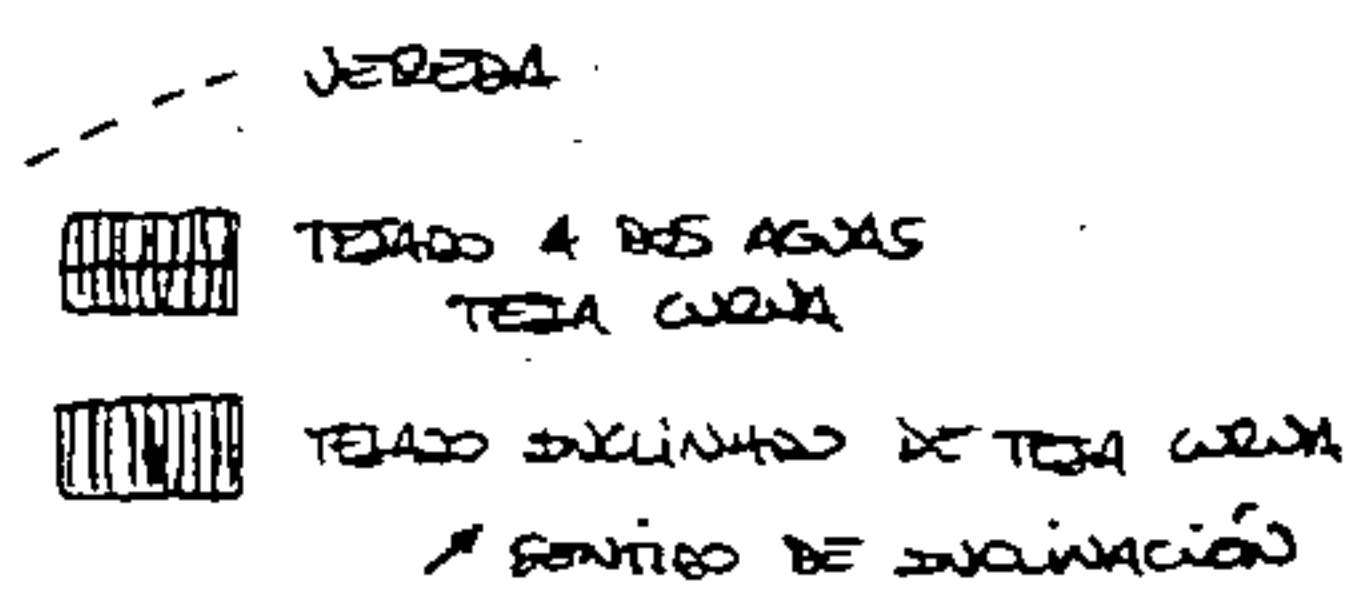 VEREDA
TEJADO A DOS AGUAS
TEJA CURVA
TEJADO INCLINADO DE TEJA CURVA
SENTIDO DE INCLINACIÓN